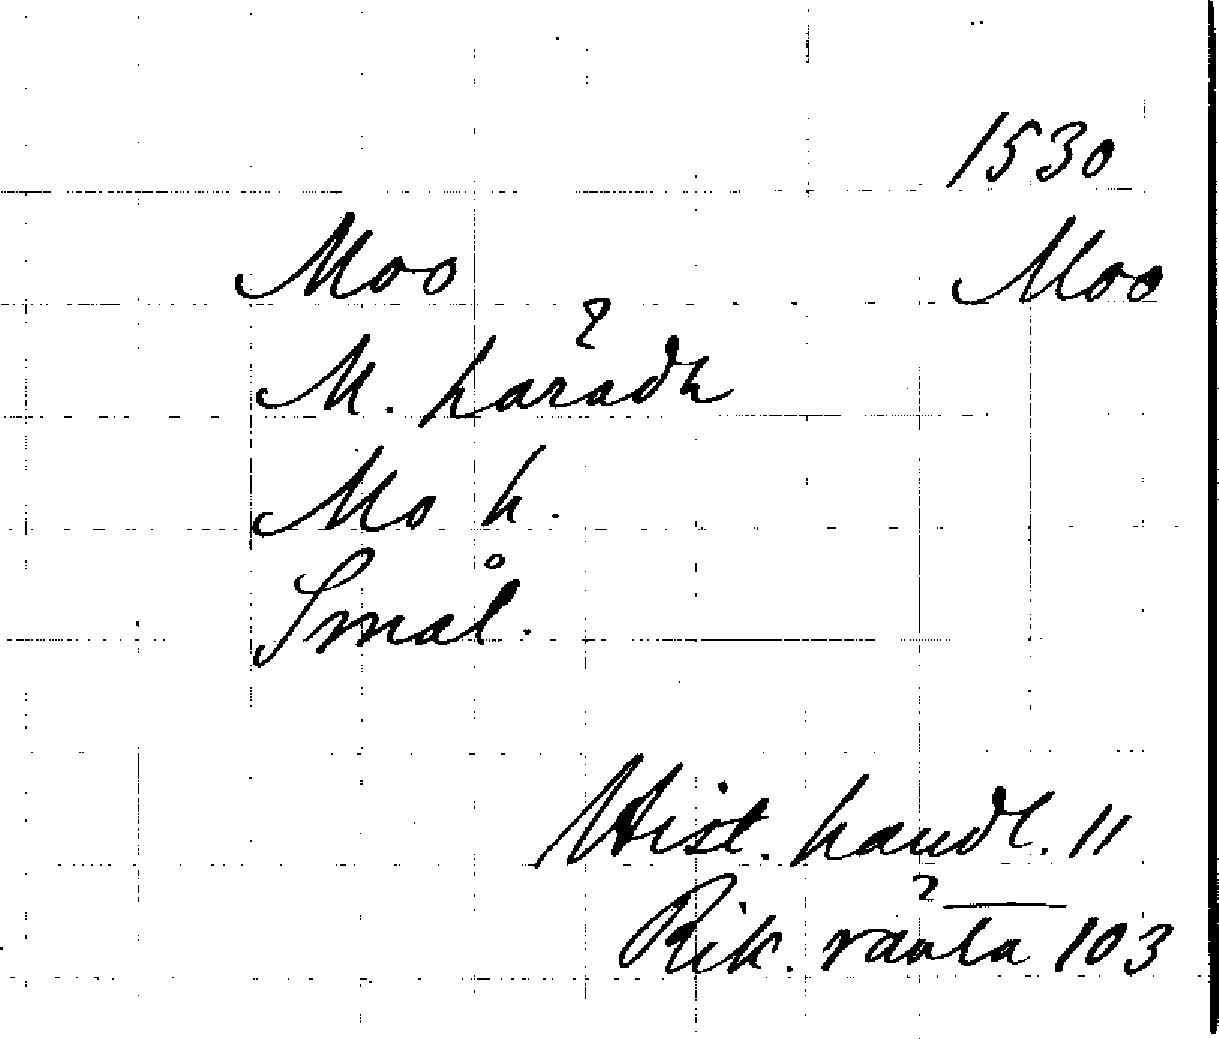 1530
Moo Moo
M. häradh
Mo h.
Smål.
Hist. handl. 11
Rik. ränta 103